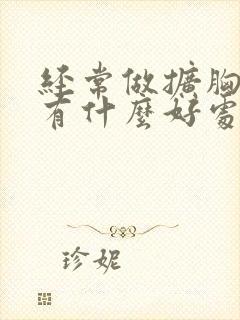 經常做擴胸
有什麼好處
珍妮